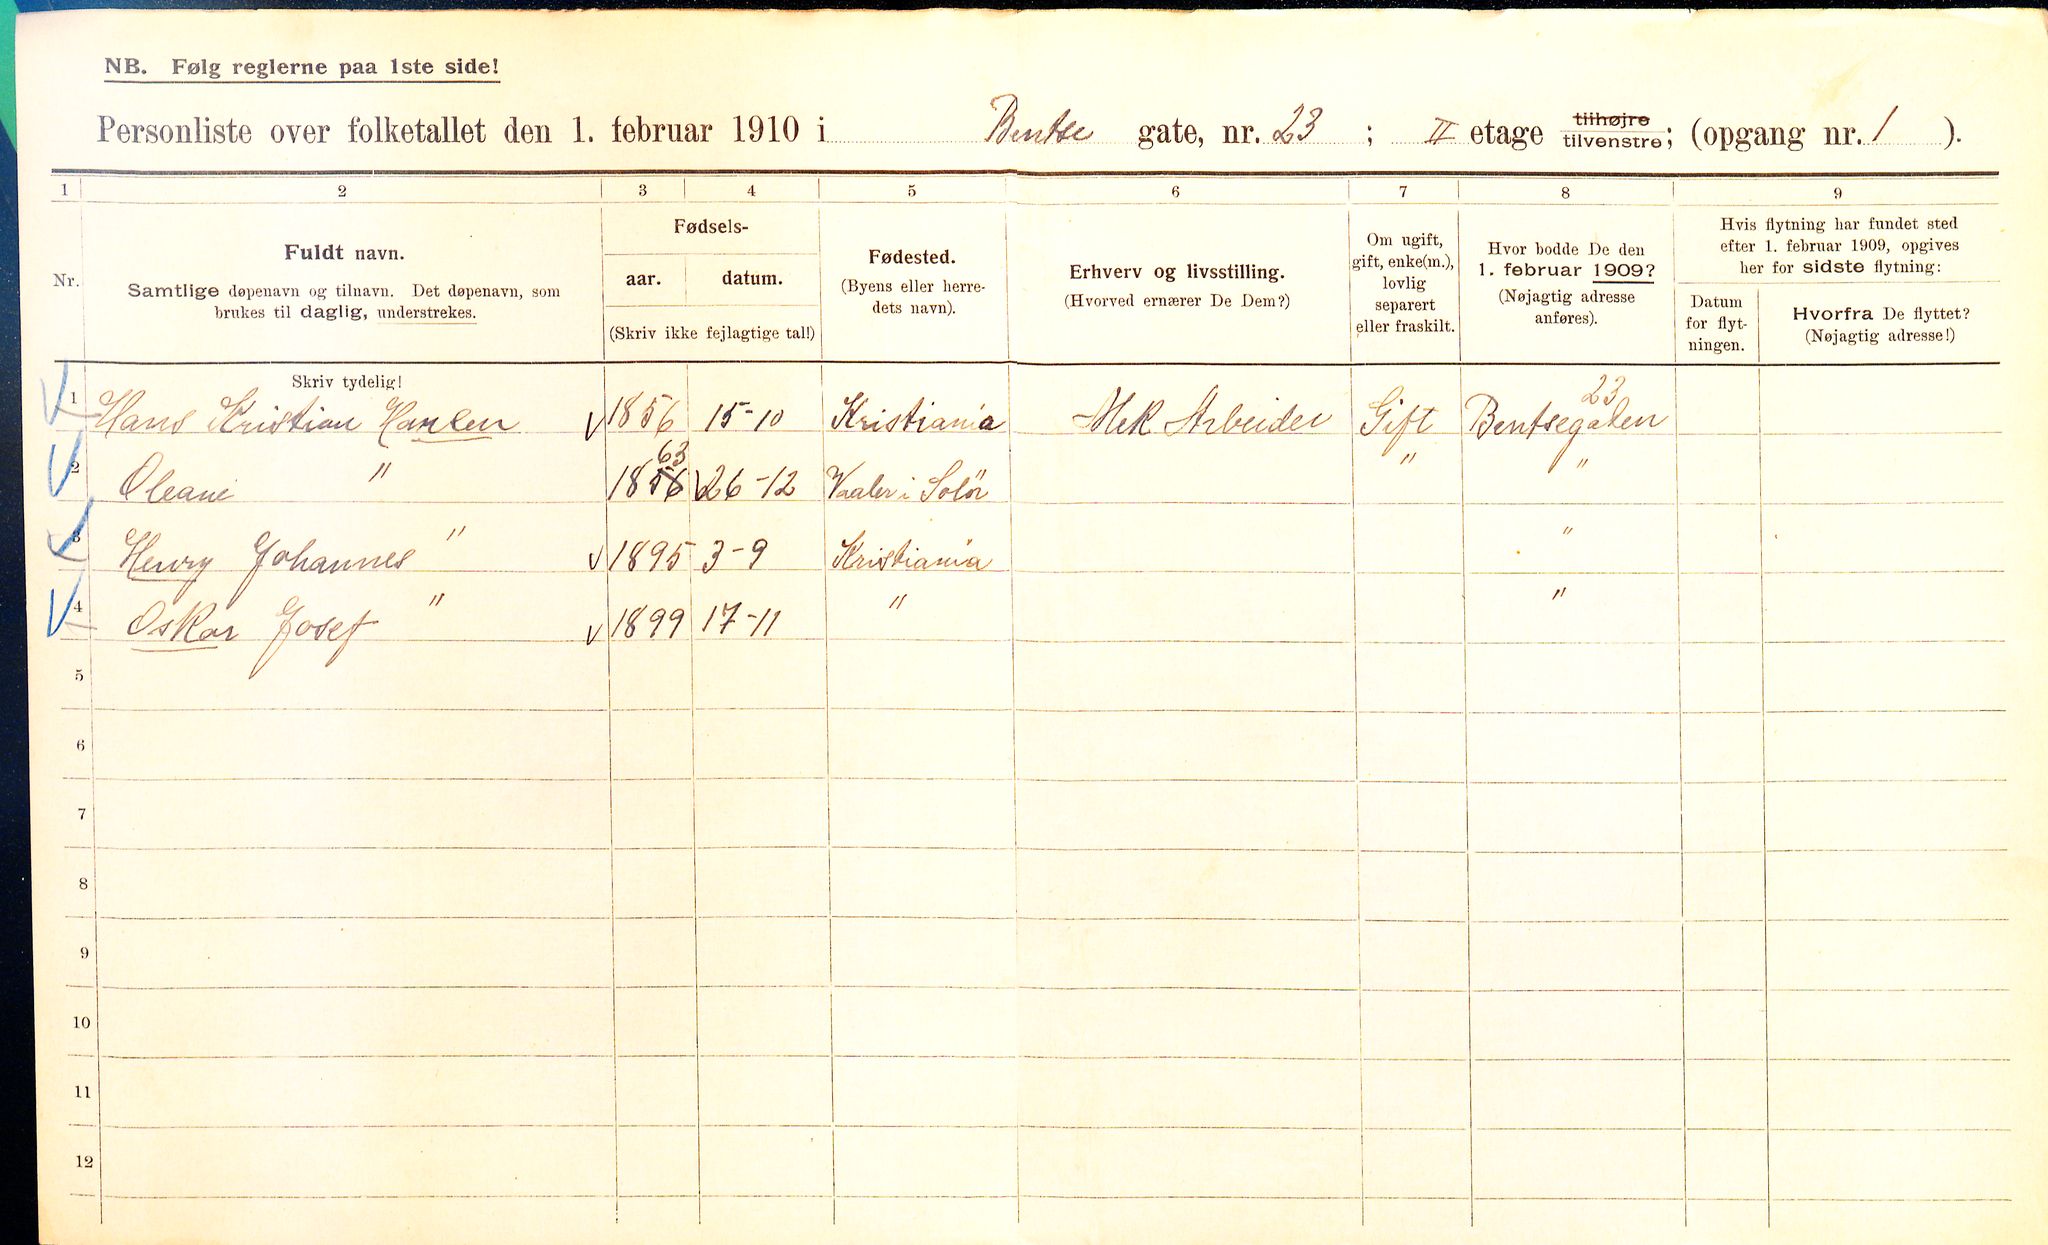 NB. Følg reglerne paa 1ste side!
Personliste over folketallet den 1. februar 1910 i Bentse gate, nr. 23 ; II etage tilhøjre tilvenstre; (opgang nr. 1 ).
1 2 3 4 5 6 7 8 9
Nr.
Fuldt navn.
Samtlige døpenavn og tilnavn. Det døpenavn, som
brukes til daglig, understrekes.
Skriv tydelig!
Fødsels-
aar. datum.
(Skriv ikke fejlagtige tal!)
Fødested.
(Byens eller herre-
dets navn).
Erhverv og livsstilling.
(Hvorved ernærer De Dem?)
Om ugift,
gift, enke(m.),
lovlig
separert
eller fraskilt.
Hvor bodde De den
1. februar 1909?
(Nøjagtig adresse
anføres).
Hvis flytning har fundet sted
efter 1. februar 1909, opgives
her for sidste flytning:
Datum
for flyt-
ningen.
Hvorfra De flyttet?
(Nøjagtig adresse!)
23
1 Hans Kristian Hansen 1856 15-10 Kristiania Mek Arbeider Gift Bentsegaten
63
2 Oleane " 1856 26-12 Vaaler i Solör " "
3 Henry Johannes " 1895 3-9 Kristiania "
4 Oskar Josef " 1899 17-11 " "
5
6
7
8
9
10
11
12